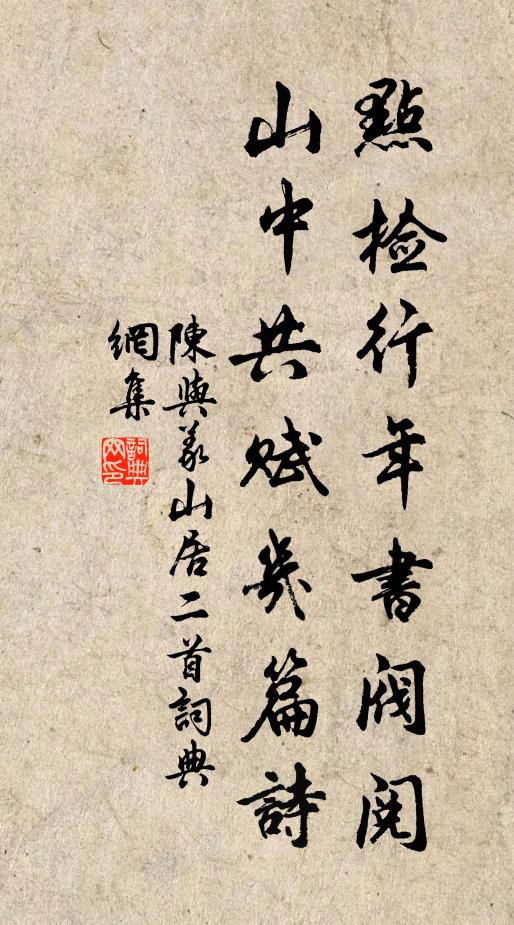 點檢行年書閥閱
山中共賦幾篇詩
陳與義山居二首詞典
網集
詞典网印